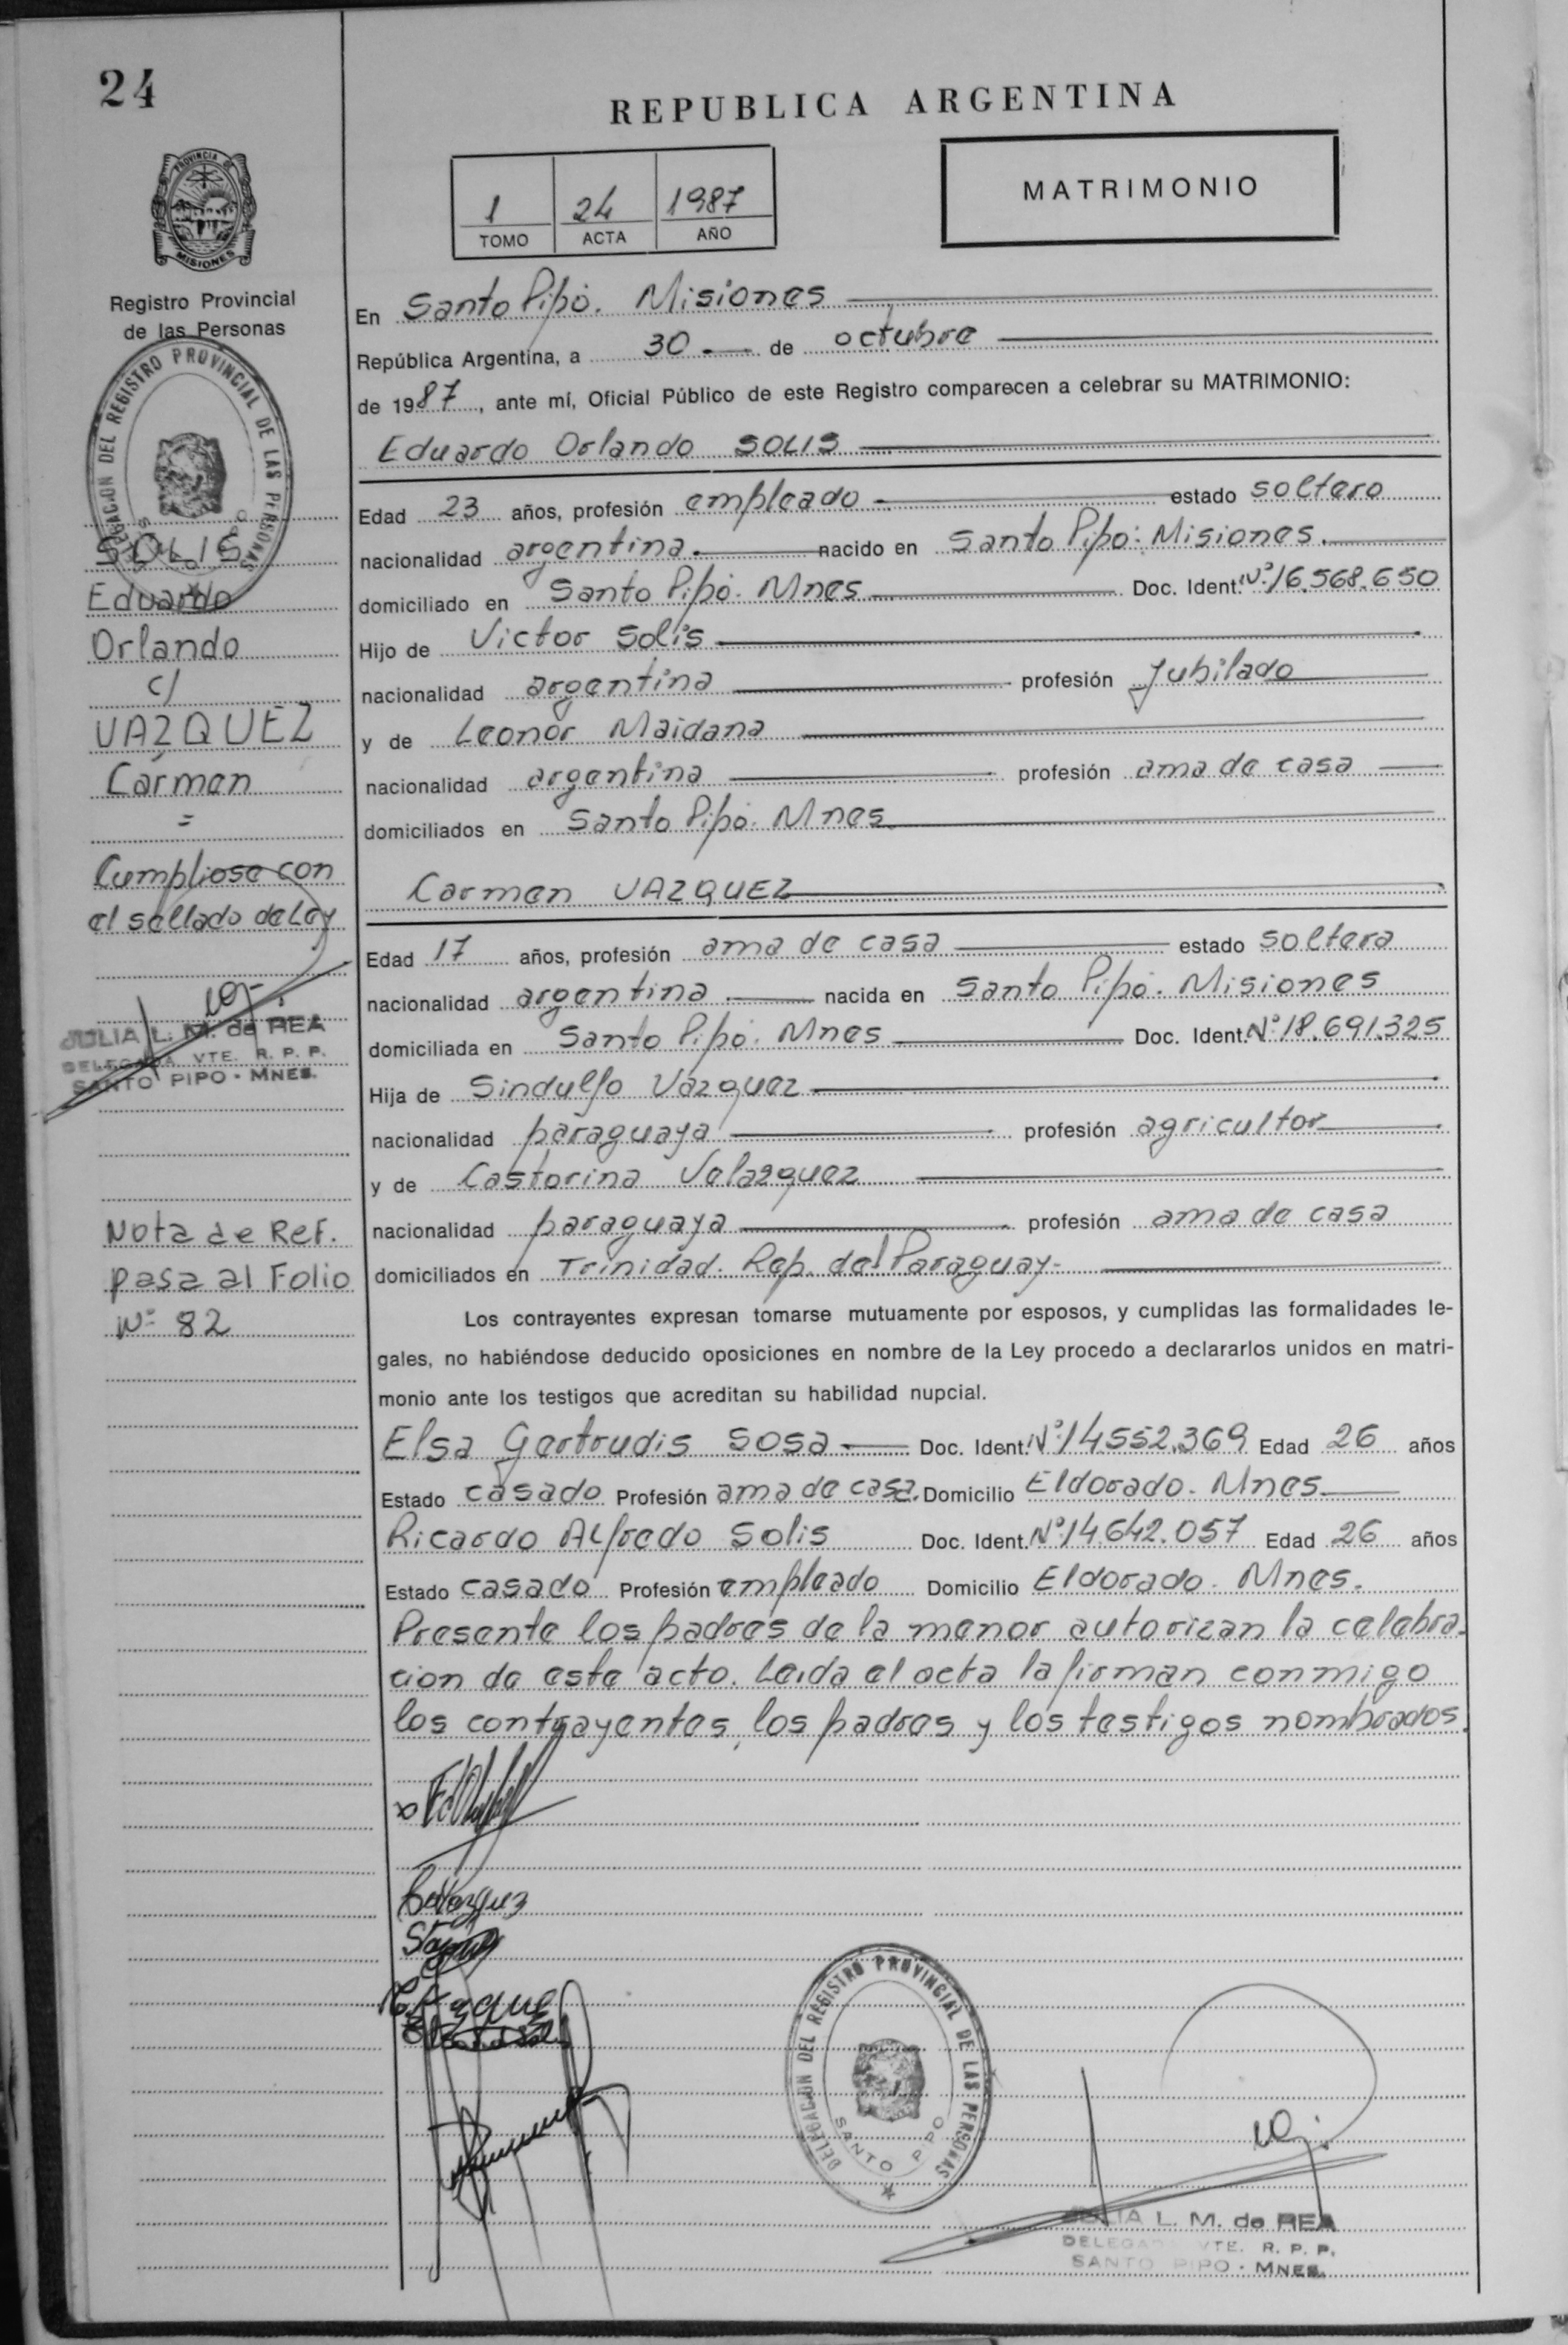 24
REPUBLICA ARGENTINA
1 24 1987
TOMO ACTA AÑO
MATRIMONIO
PROVINCIA DE
MISIONES
Registro Provincial
de las Personas
DELEGACION DEL REGISTRO PROVINCIAL DE LAS PERSONAS
SOLIS
Eduardo
Orlando
c/
VAZQUEZ
Carmen
=
Cumpliose con
el sellado de Ley
JULIA L. M. de REA
DELEGADA VTE. R. P. P.
SANTO PIPO - MNES.
Nota de Ref.
pasa al Folio
Nº 82
En Santo Pipó. Misiones
República Argentina, a 30 de octubre
de 1987, ante mí, Oficial Público de este Registro comparecen a celebrar su MATRIMONIO:
Eduardo Orlando SOLIS
Edad 23 años, profesión empleado estado soltero
nacionalidad argentina nacido en Santo Pipó. Misiones.
domiciliado en Santo Pipó. Mnes Doc. Ident. Nº 16.568.650
Hijo de Victor Solis
nacionalidad argentina profesión Jubilado
y de Leonor Maidana
nacionalidad argentina profesión ama de casa
domiciliados en Santo Pipó. Mnes
Carmen VAZQUEZ
Edad 17 años, profesión ama de casa estado soltera
nacionalidad argentina nacida en Santo Pipó. Misiones
domiciliada en Santo Pipó. Mnes Doc. Ident. Nº 18.691.325
Hija de Sindulfo Vazquez
nacionalidad paraguaya profesión agricultor
y de Castorina Velazquez
nacionalidad paraguaya profesión ama de casa
domiciliados en Trinidad. Rep. del Paraguay-
Los contrayentes expresan tomarse mutuamente por esposos, y cumplidas las formalidades le-
gales, no habiéndose deducido oposiciones en nombre de la Ley procedo a declararlos unidos en matri-
monio ante los testigos que acreditan su habilidad nupcial.
Elsa Gertrudis SOSA Doc. Ident. Nº 14552.369 Edad 26 años
Estado casado Profesión ama de casa. Domicilio Eldorado. Mnes
Ricardo Alfredo Solis Doc. Ident. Nº 14.642.057 Edad 26 años
Estado casado Profesión empleado Domicilio Eldorado. Mnes.
Presente los padres de la menor autorizan la celebra-
cion de este acto. Leida el acta la firman conmigo
los contrayentes, los padres y los testigos nombrados.
DELEGACION DEL REGISTRO PROVINCIAL DE LAS PERSONAS
SANTO PIPO
JULIA L. M. de REA
DELEGADA VTE. R. P. P.
SANTO PIPO - MNES.